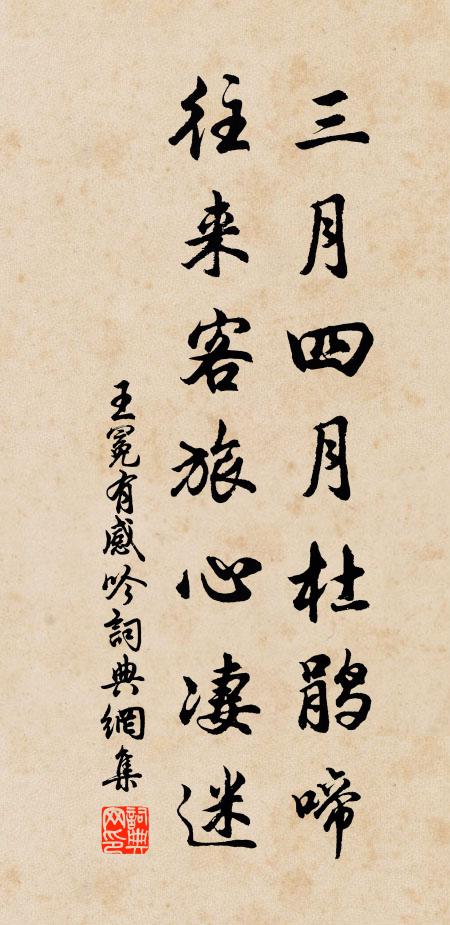 三月四月杜鹃啼
往来客旅心凄迷
王冕有感吟詞典網集
詞典网印